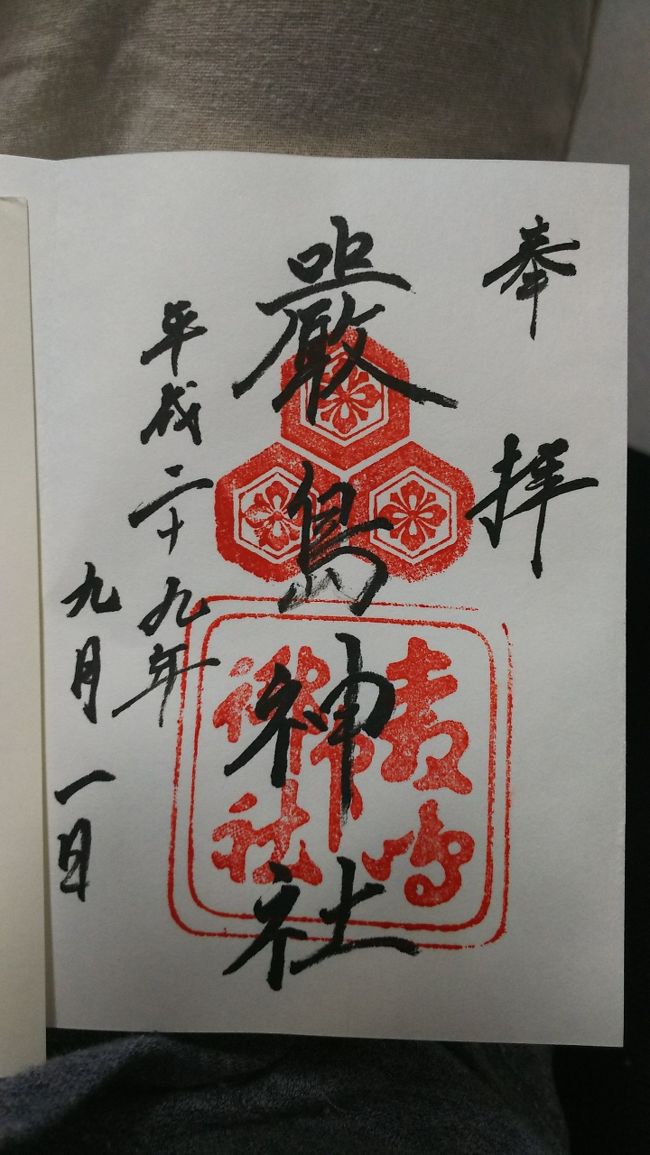 奉拝
嚴島神社
平成二十九年
九月一日
嚴島
神社